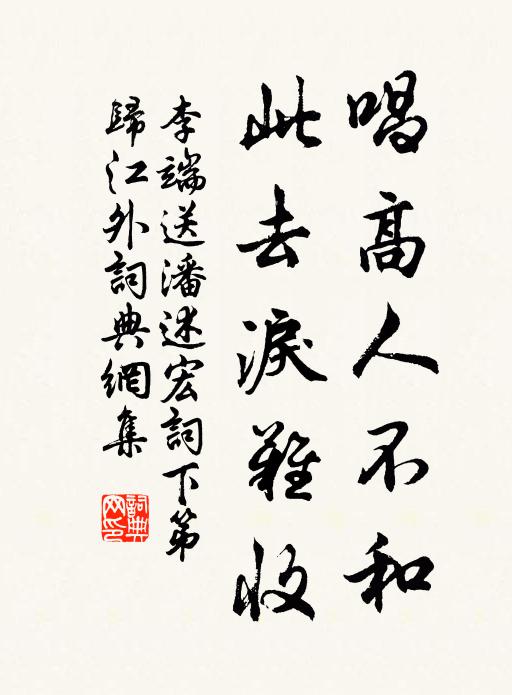 唱高人不和
此去淚難收
李端送潘述宏詞下第
歸江外詞典網集
詞典網印